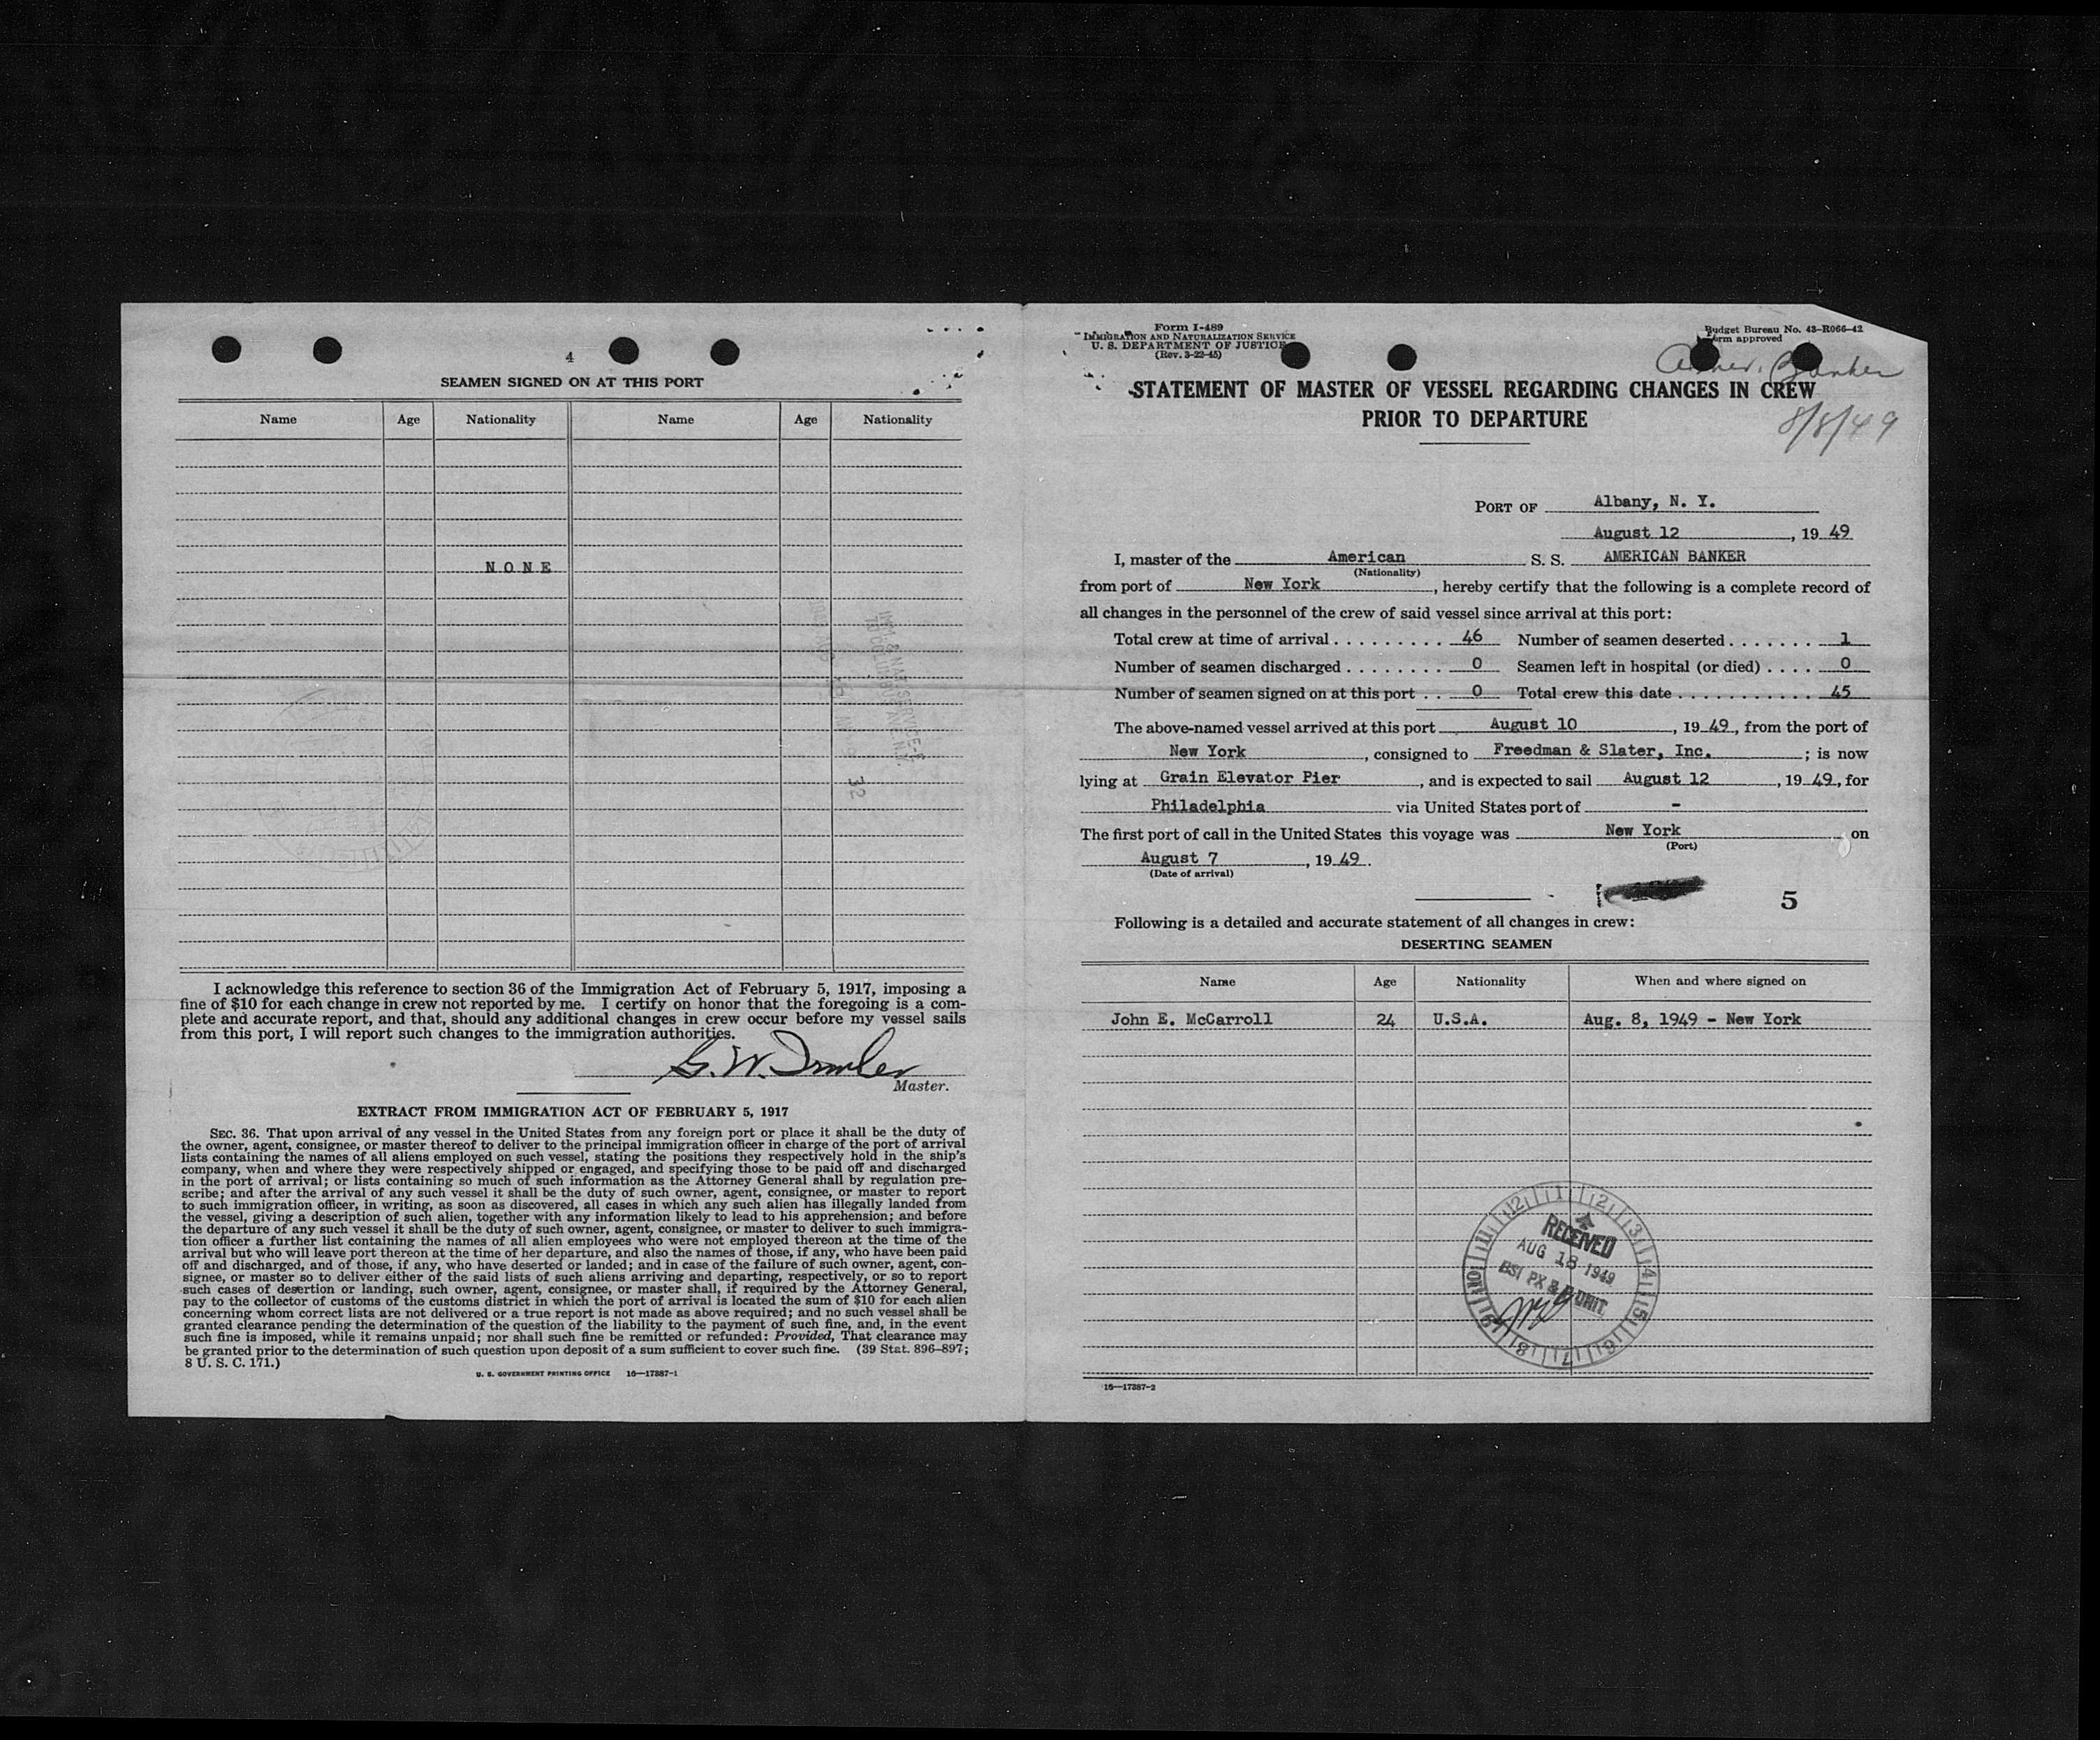 4
SEAMEN SIGNED ON AT THIS PORT
Name Age Nationality Name Age Nationality
NONE
I acknowledge this reference to section 36 of the Immigration Act of February 5, 1917, imposing a
fine of $10 for each change in crew not reported by me. I certify on honor that the foregoing is a com-
plete and accurate report, and that, should any additional changes in crew occur before my vessel sails
from this port, I will report such changes to the immigration authorities.
G. W.
Master.
EXTRACT FROM IMMIGRATION ACT OF FEBRUARY 5, 1917
SEC. 36. That upon arrival of any vessel in the United States from any foreign port or place it shall be the duty of
the owner, agent, consignee, or master thereof to deliver to the principal immigration officer in charge of the port of arrival
lists containing the names of all aliens employed on such vessel, stating the positions they respectively hold in the ship's
company, when and where they were respectively shipped or engaged, and specifying those to be paid off and discharged
in the port of arrival; or lists containing so much of such information as the Attorney General shall by regulation pre-
scribe; and after the arrival of any such vessel it shall be the duty of such owner, agent, consignee, or master to report
to such immigration officer, in writing, as soon as discovered, all cases in which any such alien has illegally landed from
the vessel, giving a description of such alien, together with any information likely to lead to his apprehension; and before
the departure of any such vessel it shall be the duty of such owner, agent, consignee, or master to deliver to such immigra-
tion officer a further list containing the names of all alien employees who were not employed thereon at the time of the
arrival but who will leave port thereon at the time of her departure, and also the names of those, if any, who have been paid
off and discharged, and of those, if any, who have deserted or landed; and in case of the failure of such owner, agent, con-
signee, or master so to deliver either of the said lists of such aliens arriving and departing, respectively, or so to report
such cases of desertion or landing, such owner, agent, consignee, or master shall, if required by the Attorney General,
pay to the collector of customs of the customs district in which the port of arrival is located the sum of $10 for each alien
concerning whom correct lists are not delivered or a true report is not made as above required; and no such vessel shall be
granted clearance pending the determination of the question of the liability to the payment of such fine, and, in the event
such fine is imposed, while it remains unpaid; nor shall such fine be remitted or refunded: Provided, That clearance may
be granted prior to the determination of such question upon deposit of a sum sufficient to cover such fine. (39 Stat. 896–897;
8 U. S. C. 171.)
U. S. GOVERNMENT PRINTING OFFICE 16—17387-1
Form I-489
IMMIGRATION AND NATURALIZATION SERVICE
U. S. DEPARTMENT OF JUSTICE
(Rev. 3-22-45)
Budget Bureau No. 43-R066-42
approved
Banker
STATEMENT OF MASTER OF VESSEL REGARDING CHANGES IN CREW
PRIOR TO DEPARTURE
8/8/49
PORT OF Albany, N. Y.
August 12, 1949
I, master of the American S. S. AMERICAN BANKER
(Nationality)
from port of New York, hereby certify that the following is a complete record of
all changes in the personnel of the crew of said vessel since arrival at this port:
Total crew at time of arrival . . . . . . . . . . 46 Number of seamen deserted . . . . . . . 1
Number of seamen discharged . . . . . . . . . 0 Seamen left in hospital (or died) . . . . 0
Number of seamen signed on at this port . . 0 Total crew this date . . . . . . . . . . . . 45
The above-named vessel arrived at this port August 10, 1949, from the port of
New York, consigned to Freedman & Slater, Inc.; is now
lying at Grain Elevator Pier, and is expected to sail August 12, 1949, for
Philadelphia via United States port of -
The first port of call in the United States this voyage was New York on
(Port)
August 7, 1949.
(Date of arrival)
5
Following is a detailed and accurate statement of all changes in crew:
DESERTING SEAMEN
Name Age Nationality When and where signed on
John E. McCarroll 24 U.S.A. Aug. 8, 1949 - New York
12 1 2 3 4 5 6 7 8 9 10 11
RECEIVED
AUG 18 1949
BSI PX & UNIT
16—17387-2